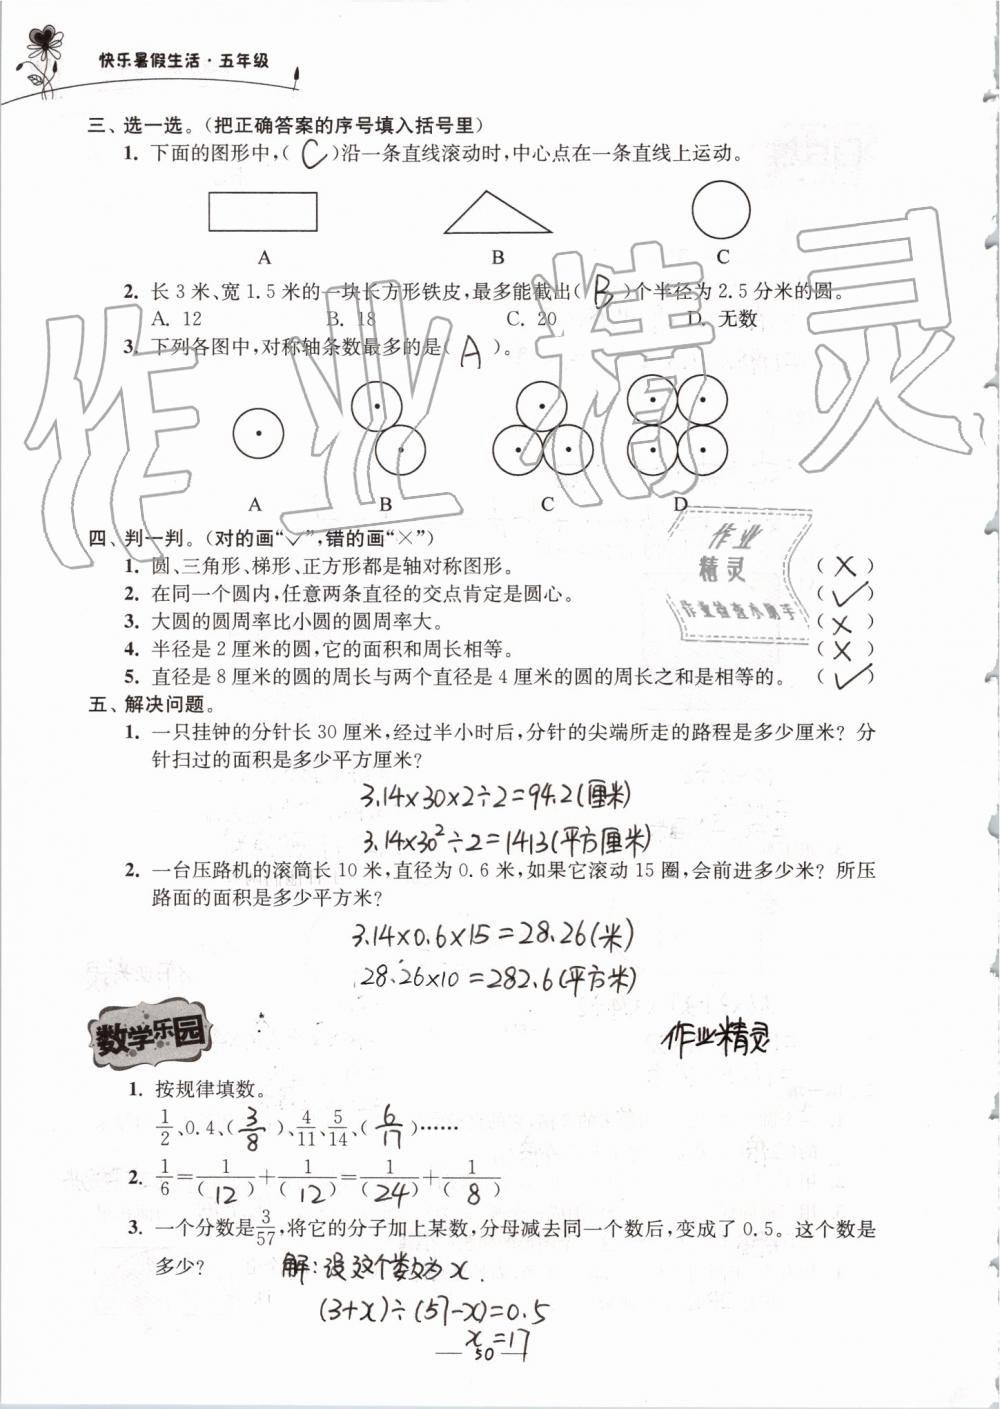 快乐暑假生活·五年级
三、选一选。(把正确答案的序号填入括号里)
1. 下面的图形中,( C )沿一条直线滚动时,中心点在一条直线上运动。
A B C
2. 长3米、宽1.5米的一块长方形铁皮,最多能截出( B )个半径为2.5分米的圆。
A. 12 B. 18 C. 20 D. 无数
3. 下列各图中,对称轴条数最多的是( A )。
A B C D
四、判一判。(对的画“✓”,错的画“×”)
1. 圆、三角形、梯形、正方形都是轴对称图形。 ( × )
2. 在同一个圆内,任意两条直径的交点肯定是圆心。 ( ✓ )
3. 大圆的圆周率比小圆的圆周率大。 ( × )
4. 半径是2厘米的圆,它的面积和周长相等。 ( × )
5. 直径是8厘米的圆的周长与两个直径是4厘米的圆的周长之和是相等的。 ( ✓ )
作业
精灵
作业检查小助手
作业精灵
五、解决问题。
1. 一只挂钟的分针长30厘米,经过半小时后,分针的尖端所走的路程是多少厘米?分
针扫过的面积是多少平方厘米?
3.14×30×2÷2=94.2(厘米)
3.14×30²÷2=1413(平方厘米)
2. 一台压路机的滚筒长10米,直径为0.6米,如果它滚动15圈,会前进多少米?所压
路面的面积是多少平方米?
3.14×0.6×15=28.26(米)
28.26×10=282.6(平方米)
数学乐园
作业精灵
1. 按规律填数。
1/2、0.4、( 3/8 )、4/11、5/14、( 6/17 )……
2. 1/6=1/( 12 )+1/( 12 )=1/( 24 )+1/( 8 )
3. 一个分数是3/57,将它的分子加上某数,分母减去同一个数后,变成了0.5。这个数是
多少? 解:设这个数为x.
(3+x)÷(57-x)=0.5
x=17
— 50 —